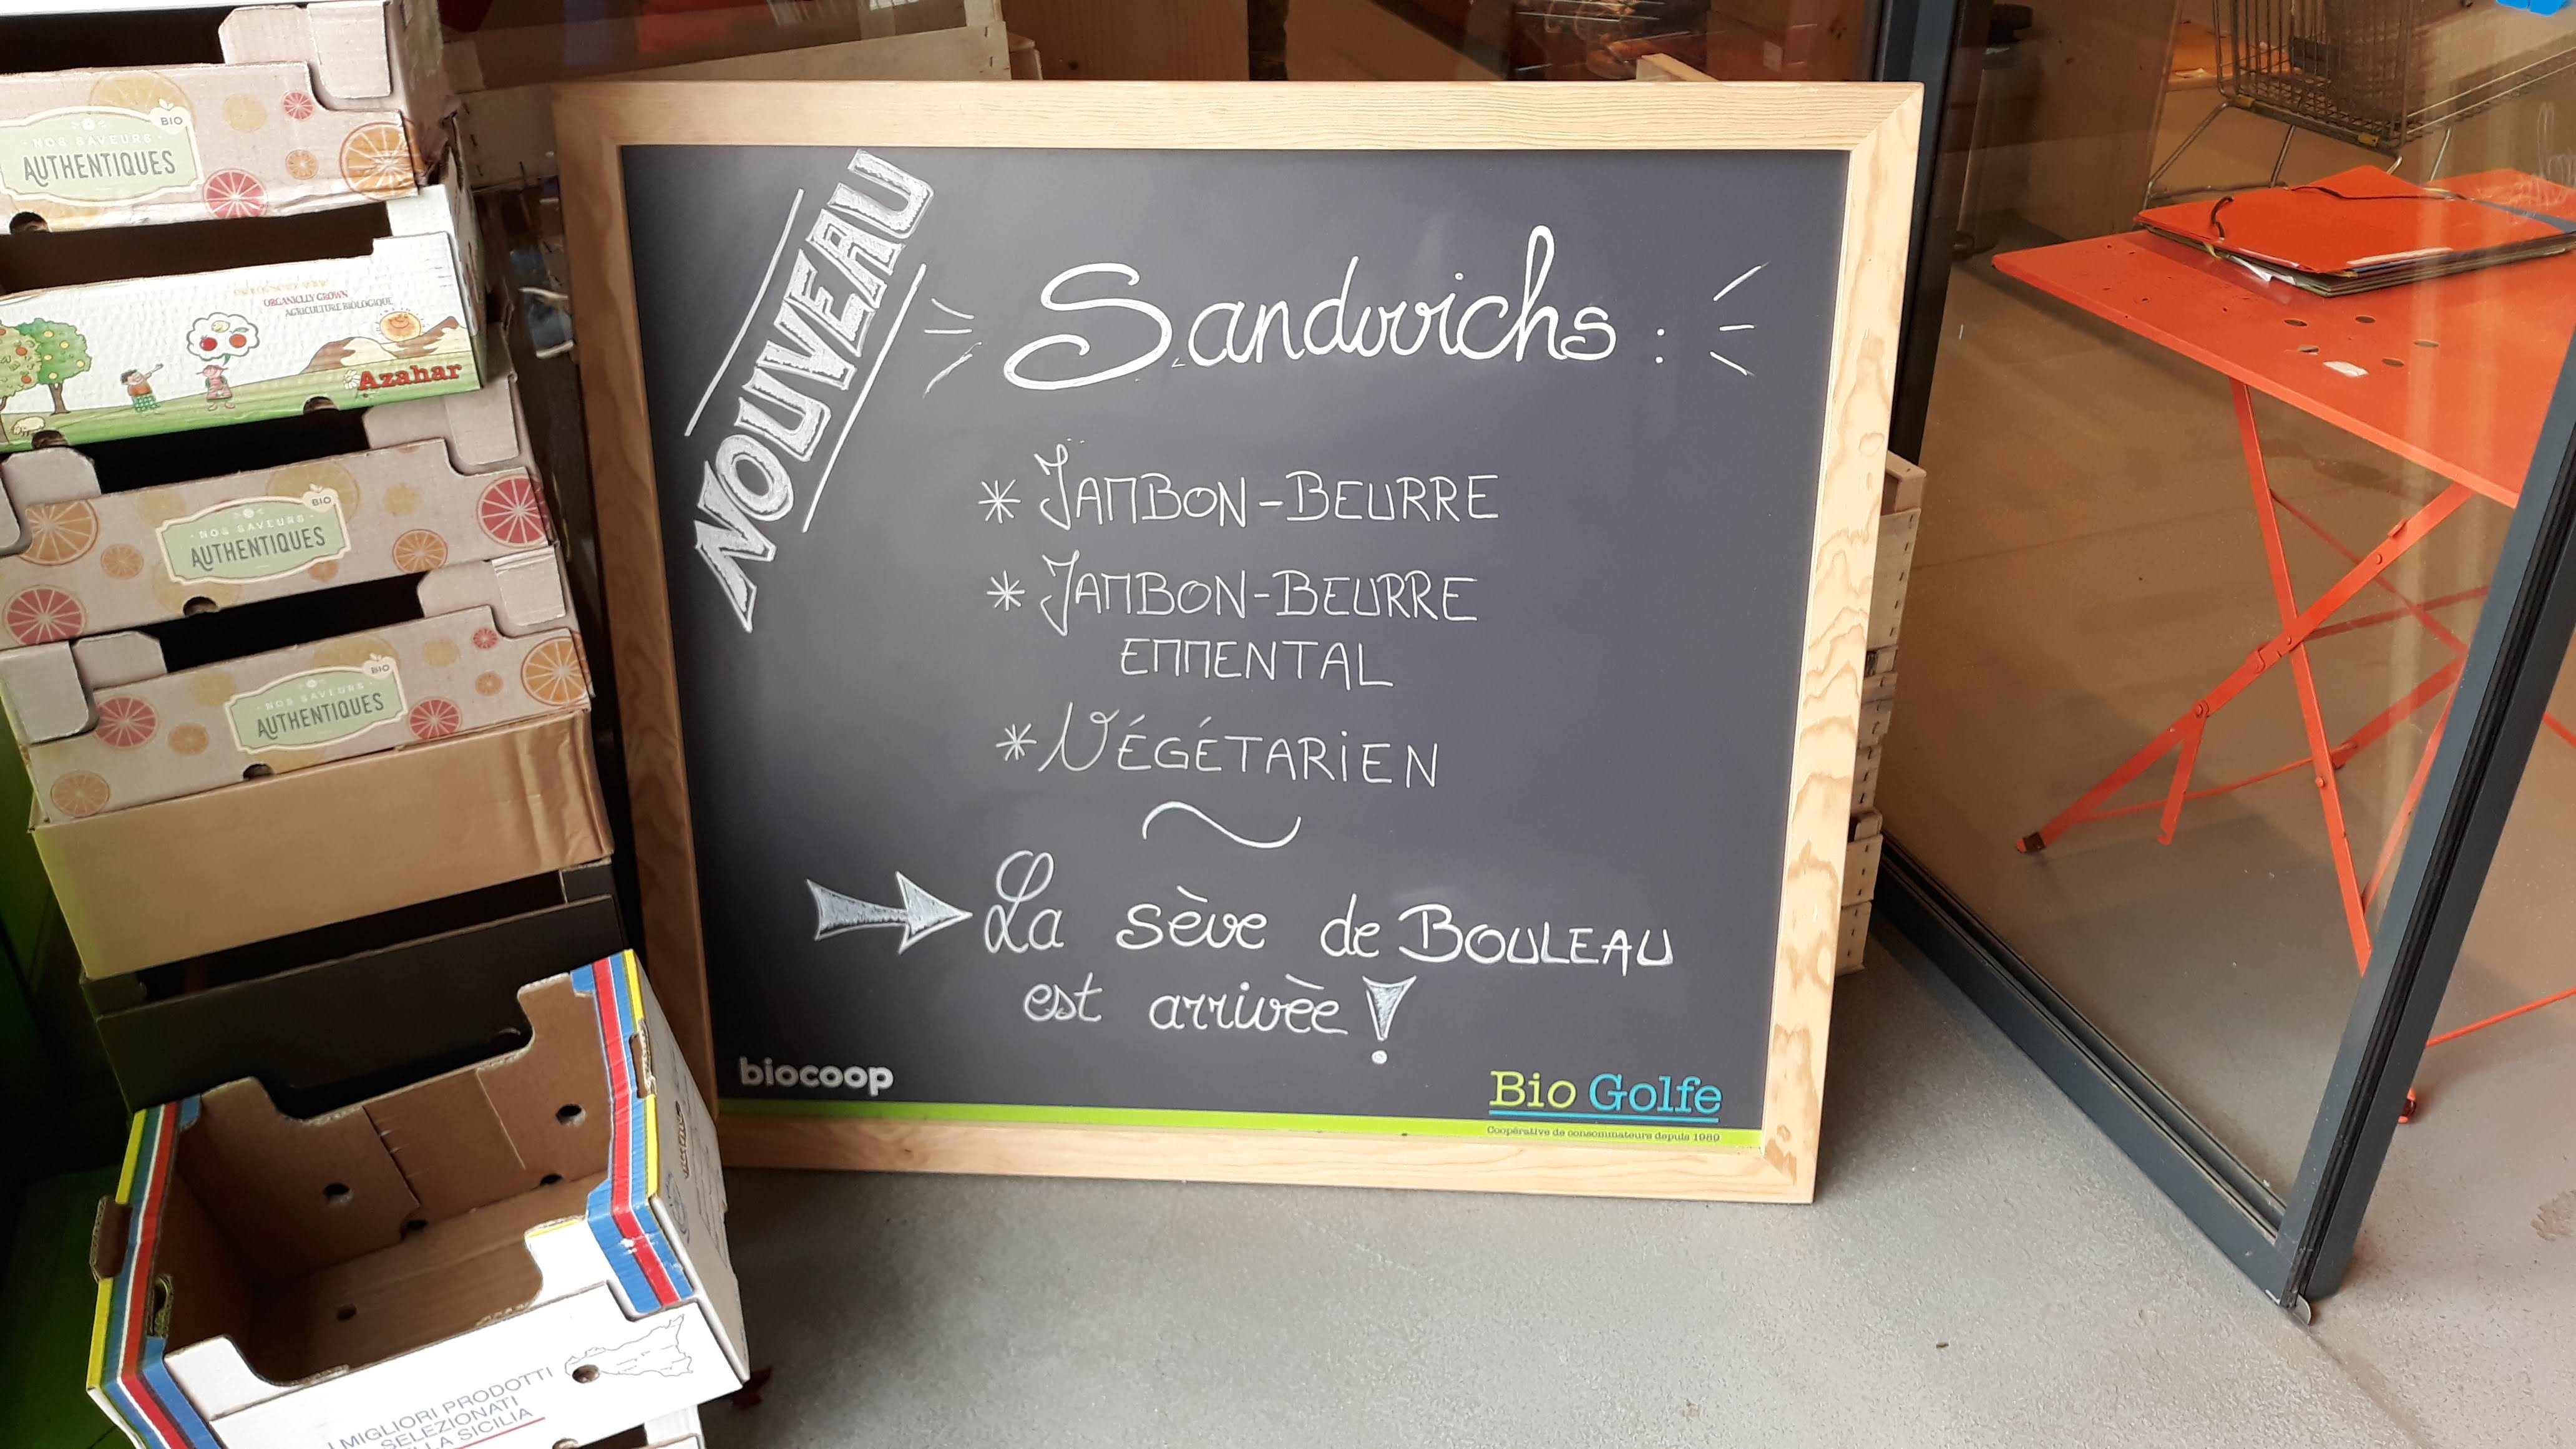 NOS SAVEURS
AUTHENTIQUES
BIO
ORGANICLLY GROWN
AGRICULTURE BIOLOGIQUE
Azahar
NOS SAVEURS
AUTHENTIQUES
BIO
NOS SAVEURS
AUTHENTIQUES
BIO
I MIGLIORI PRODOTTI
SELEZIONATI
LA SICILIA
NOUVEAU
Sandwichs :
* JAMBON-BEURRE
* JAMBON-BEURRE
EMMENTAL
* VÉGÉTARIEN
La sève de BOULEAU
est arrivèe !
biocoop
Bio Golfe
Coopérative de consommateurs depuis 1989